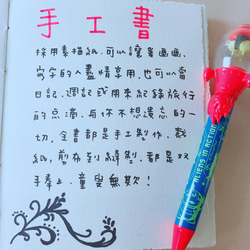 手工書
採用素描紙，可以讓畫畫、
寫字的人盡情享用，也可以當
日記、週記或用來紀錄旅行
的點滴，与你不想遺忘的一
切，全書都是手工製作，裁
紙、剪布到縫製，都是双
手奉上，童叟無欺！
ALIENS IN ACTION